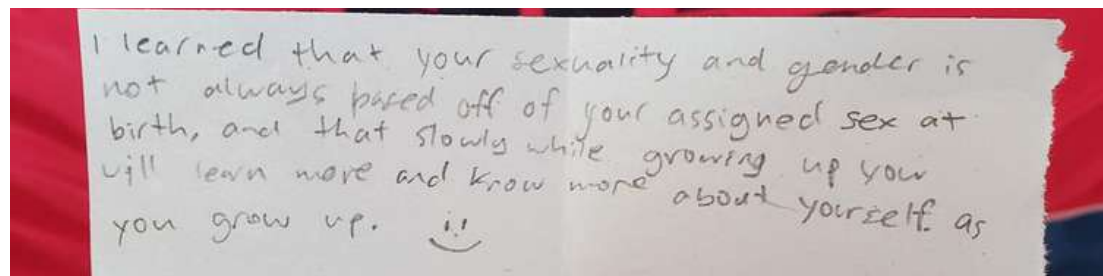 I learned that your sexuality and gender is
not always based off of your assigned sex at
birth, and that slowly while growing up your
will learn more and know more about yourself as
you grow up. :)